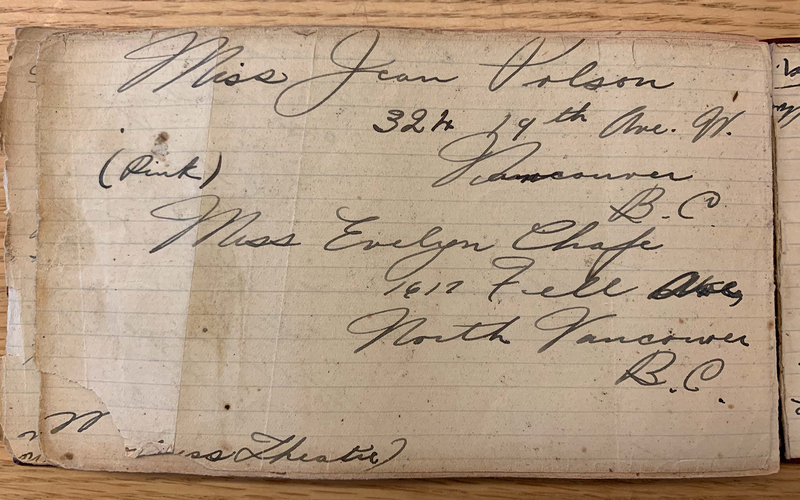 Miss Jean Polson
324 19th Ave. W.
(Pink)
Vancouver
B.C.
Miss Evelyn Chafe
1617 Fell Ave,
North Vancouver
B.C.
Theatre)